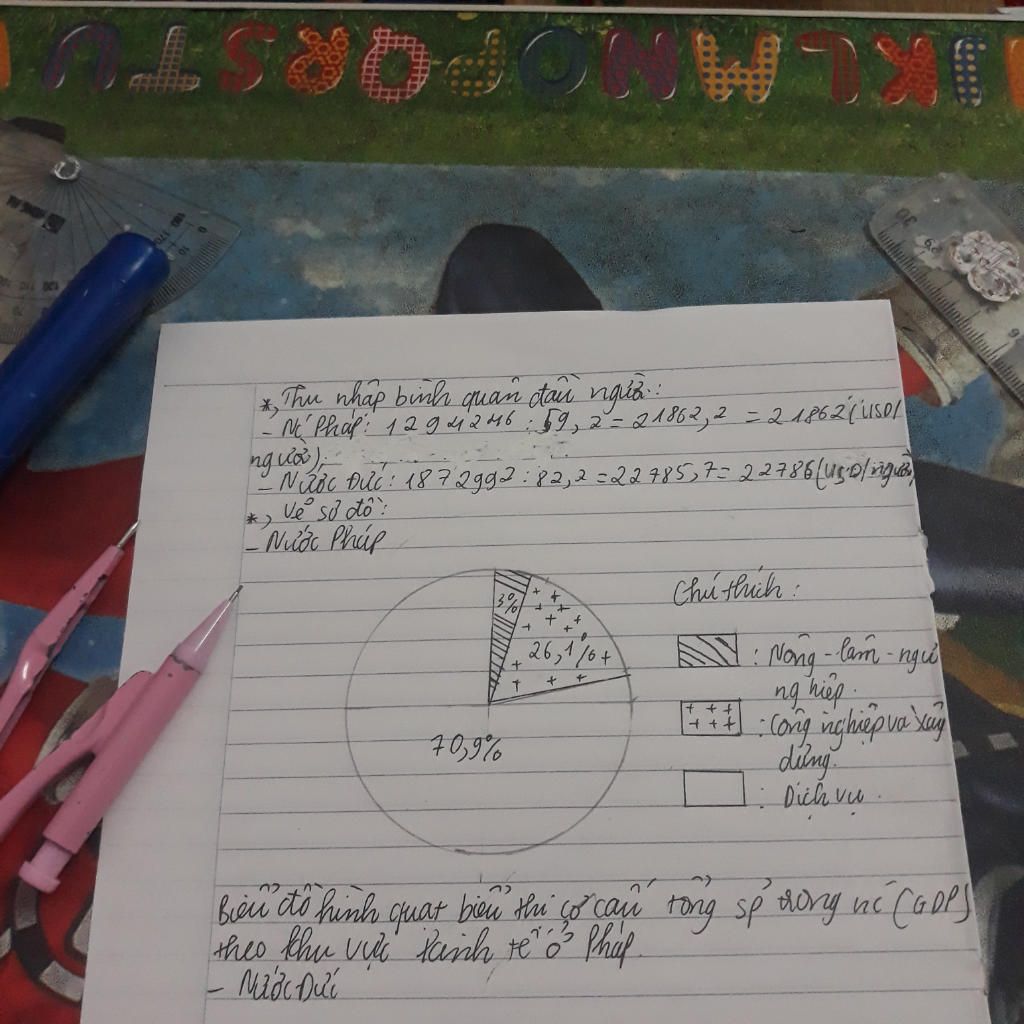 U T S R Q P O N M L K J I
*, Thu nhập bình quân đầu người:
- Nc Pháp: 1294246 : 59,2 = 21862,2 = 21862 (USD/
người);
- Nước Đức: 1872992 : 82,2 = 22785,7 = 22786 (USD/người)
*, Vẽ sơ đồ:
- Nước Pháp
3%
26,1%
70,9%
Chú thích:
: Nông-lâm-ngư
nghiệp.
: Công nghiệp và xây
dựng.
: Dịch vụ.
Biểu đồ hình quạt biểu thị cơ cấu tổng sp trong nc (GDP)
theo khu vực kinh tế ở Pháp.
- Nước Đức